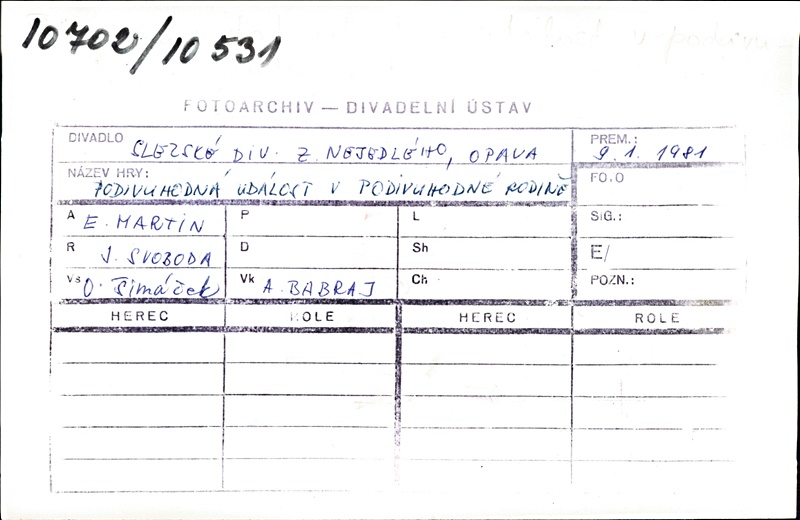 10702/10531
FOTOARCHIV — DIVADELNÍ ÚSTAV
DIVADLO SLEZSKÉ DIV. Z. NEJEDLÉHO, OPAVA PREM.: 9.1.1981
NÁZEV HRY: PODIVUHODNÁ UDÁLOST V PODIVUHODNÉ RODINĚ FO.O
A E. MARTIN P L SIG.:
R J. SVOBODA D Sh E/
Vs O. Šimáček Vk A. BABRAJ Ch POZN.:
HEREC ROLE HEREC ROLE